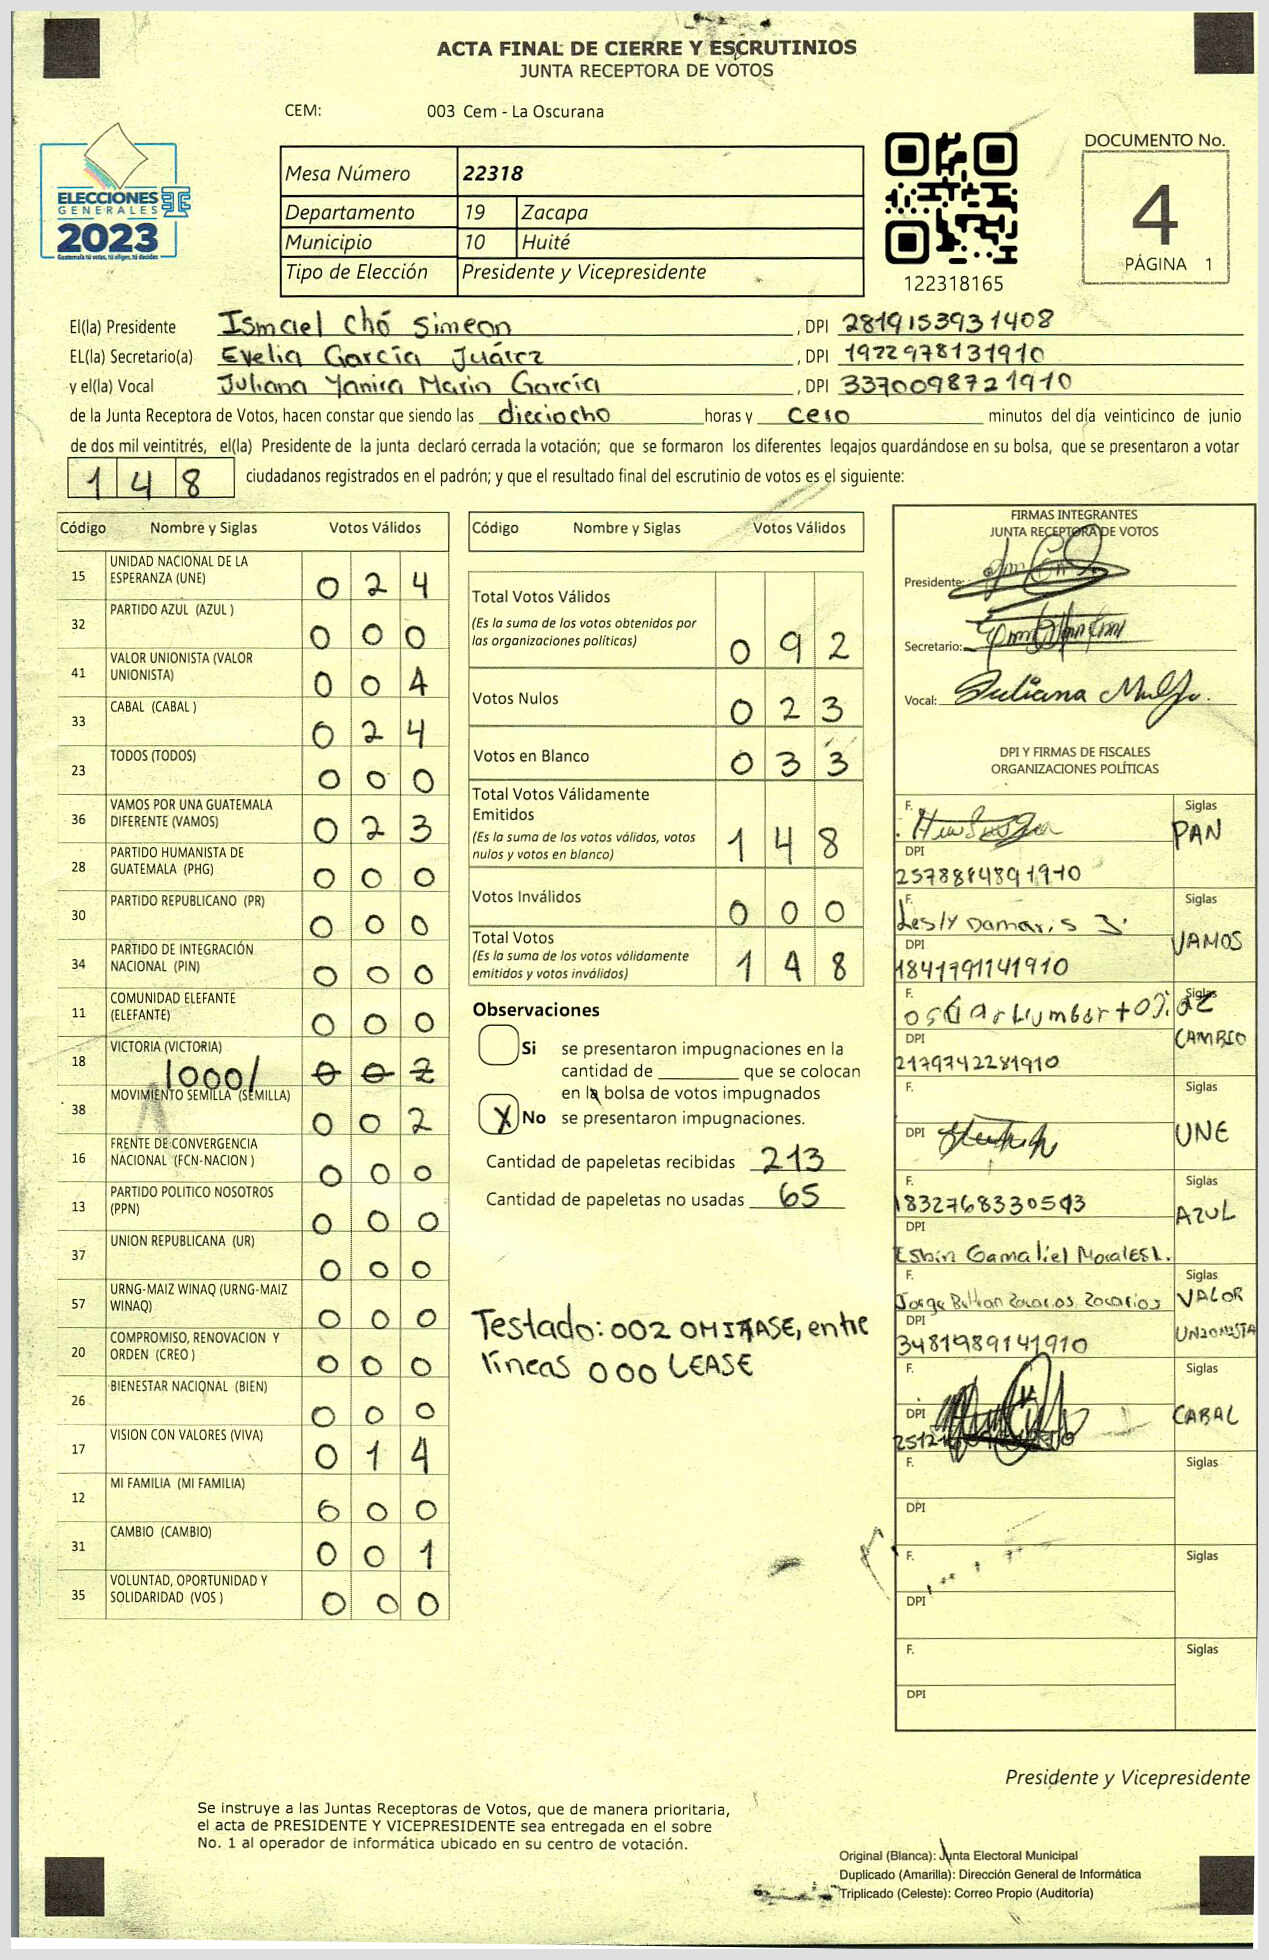 ACTA FINAL DE CIERRE Y ESCRUTINIOS
JUNTA RECEPTORA DE VOTOS
CEM: 003 Cem - La Oscurana
ELECCIONES
GENERALES
2023
Guatemala tú votas, tú eliges, tú decides
Mesa Número 22318
Departamento 19 Zacapa
Municipio 10 Huité
Tipo de Elección Presidente y Vicepresidente
122318165
DOCUMENTO No.
4
PÁGINA 1
El(la) Presidente Ismael Chó Simeon, DPI 2819153931408
EL(la) Secretario(a) Evelia García Juárez, DPI 1922978131910
y el(la) Vocal Juliana Yanira Marin García, DPI 3370098721910
de la Junta Receptora de Votos, hacen constar que siendo las dieciocho horas y cero minutos del día veinticinco de junio
de dos mil veintitrés, el(la) Presidente de la junta declaró cerrada la votación; que se formaron los diferentes legajos guardándose en su bolsa, que se presentaron a votar
148 ciudadanos registrados en el padrón; y que el resultado final del escrutinio de votos es el siguiente:
Código Nombre y Siglas Votos Válidos
15 UNIDAD NACIONAL DE LA ESPERANZA (UNE) 0 2 4
32 PARTIDO AZUL (AZUL ) 0 0 0
41 VALOR UNIONISTA (VALOR UNIONISTA) 0 0 4
33 CABAL (CABAL ) 0 2 4
23 TODOS (TODOS) 0 0 0
36 VAMOS POR UNA GUATEMALA DIFERENTE (VAMOS) 0 2 3
28 PARTIDO HUMANISTA DE GUATEMALA (PHG) 0 0 0
30 PARTIDO REPUBLICANO (PR) 0 0 0
34 PARTIDO DE INTEGRACIÓN NACIONAL (PIN) 0 0 0
11 COMUNIDAD ELEFANTE (ELEFANTE) 0 0 0
18 VICTORIA (VICTORIA) /000/ 0 0 2
38 MOVIMIENTO SEMILLA (SEMILLA) 0 0 2
16 FRENTE DE CONVERGENCIA NACIONAL (FCN-NACION ) 0 0 0
13 PARTIDO POLITICO NOSOTROS (PPN) 0 0 0
37 UNION REPUBLICANA (UR) 0 0 0
57 URNG-MAIZ WINAQ (URNG-MAIZ WINAQ) 0 0 0
20 COMPROMISO, RENOVACION Y ORDEN (CREO ) 0 0 0
26 BIENESTAR NACIONAL (BIEN) 0 0 0
17 VISION CON VALORES (VIVA) 0 1 4
12 MI FAMILIA (MI FAMILIA) 0 0 0
31 CAMBIO (CAMBIO) 0 0 1
35 VOLUNTAD, OPORTUNIDAD Y SOLIDARIDAD (VOS ) 0 0 0
Código Nombre y Siglas Votos Válidos
Total Votos Válidos
(Es la suma de los votos obtenidos por
las organizaciones políticas) 0 9 2
Votos Nulos 0 2 3
Votos en Blanco 0 3 3
Total Votos Válidamente
Emitidos
(Es la suma de los votos válidos, votos
nulos y votos en blanco) 1 4 8
Votos Inválidos 0 0 0
Total Votos
(Es la suma de los votos válidamente
emitidos y votos inválidos) 1 4 8
Observaciones
Si se presentaron impugnaciones en la
cantidad de ________ que se colocan
en la bolsa de votos impugnados
X No se presentaron impugnaciones.
Cantidad de papeletas recibidas 213
Cantidad de papeletas no usadas 65
Testado: 002 OMITASE, entre
líneas 000 LEASE
FIRMAS INTEGRANTES
JUNTA RECEPTORA DE VOTOS
Presidente:
Secretario:
Vocal: Juliana
DPI Y FIRMAS DE FISCALES
ORGANIZACIONES POLÍTICAS
F. Siglas PAN
DPI
F. Lesly Damaris Siglas VAMOS
DPI 1841791141910
F. Siglas CAMBIO
DPI 2179742281910
F. Siglas UNE
DPI
F. Siglas AZUL
DPI
Esbin Gamaliel Morales L.
F. Siglas VALOR UNIONISTA
DPI 3481989141910
F. Siglas CABAL
DPI
F. Siglas
DPI
F. Siglas
DPI
F. Siglas
DPI
Presidente y Vicepresidente
Se instruye a las Juntas Receptoras de Votos, que de manera prioritaria,
el acta de PRESIDENTE Y VICEPRESIDENTE sea entregada en el sobre
No. 1 al operador de informática ubicado en su centro de votación.
Original (Blanca): Junta Electoral Municipal
Duplicado (Amarilla): Dirección General de Informática
Triplicado (Celeste): Correo Propio (Auditoría)